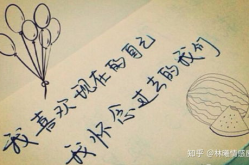 我喜欢现在的自己
我怀念过去的我们
知乎 @林庵情感屋